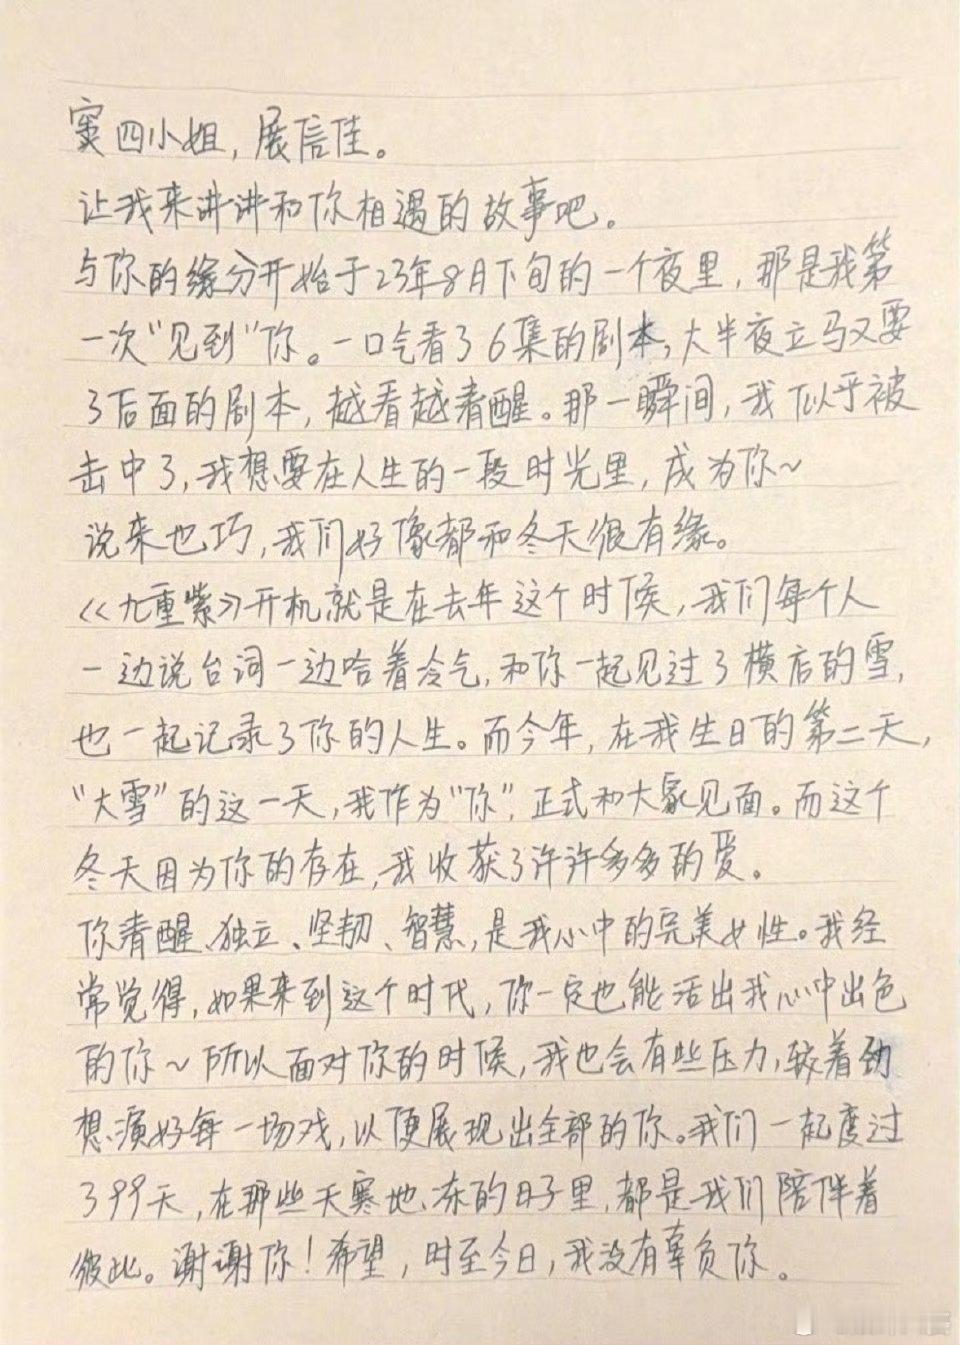 窦四小姐，展信佳。
让我来讲讲和你相遇的故事吧。
与你的缘分开始于23年8月下旬的一个夜里，那是我第
一次“见到”你。一口气看了6集的剧本，大半夜立马又要
了后面的剧本，越看越清醒。那一瞬间，我似乎被
击中了，我想要在人生的一段时光里，成为你～
说来也巧，我们好像都和冬天很有缘。
《九重紫》开机就是在去年这个时候，我们每个人
一边说台词一边哈着冷气，和你一起见过了横店的雪，
也一起记录了你的人生。而今年，在我生日的第二天，
“大雪”的这一天，我作为“你”，正式和大家见面。而这个
冬天因为你的存在，我收获了许许多多的爱。
你清醒、独立、坚韧、智慧，是我心中的完美女性。我经
常觉得，如果来到这个时代，你一定也能活出我心中出色
的你～所以面对你的时候，我也会有些压力，较着劲
想演好每一场戏，以便展现出全部的你。我们一起度过
了99天，在那些天寒地冻的日子里，都是我们陪伴着
彼此。谢谢你！希望，时至今日，我没有辜负你。